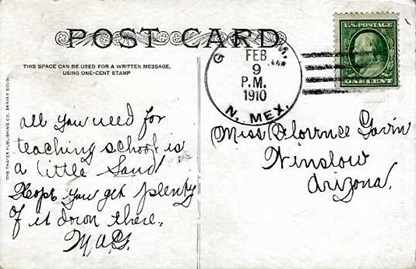 POST CARD
THIS SPACE CAN BE USED FOR A WRITTEN MESSAGE,
USING ONE-CENT STAMP
THE THAYER PUBLISHING CO. DENVER COLO.
all you need for
teaching school is
a little Sand
Hope you get plenty
of it down there.
M.A.G.
FEB
9
P.M.
1910
N. MEX.
U.S. POSTAGE
ONE CENT
Miss Florence Gavin
Winslow
Arizona.